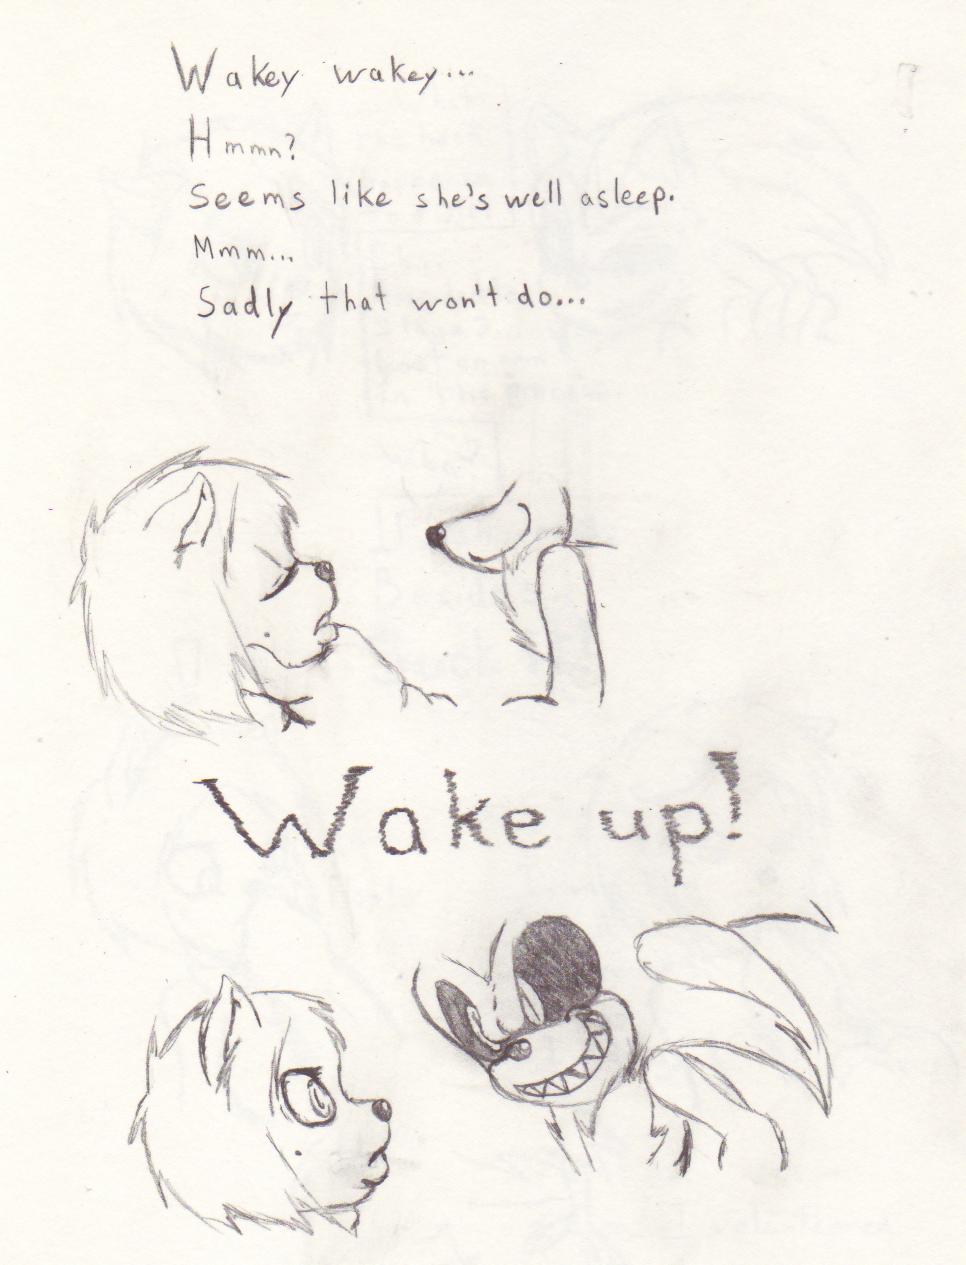 Wakey wakey...
Hmmn?
Seems like she's well asleep.
Mmm...
Sadly that won't do...
Wake up!